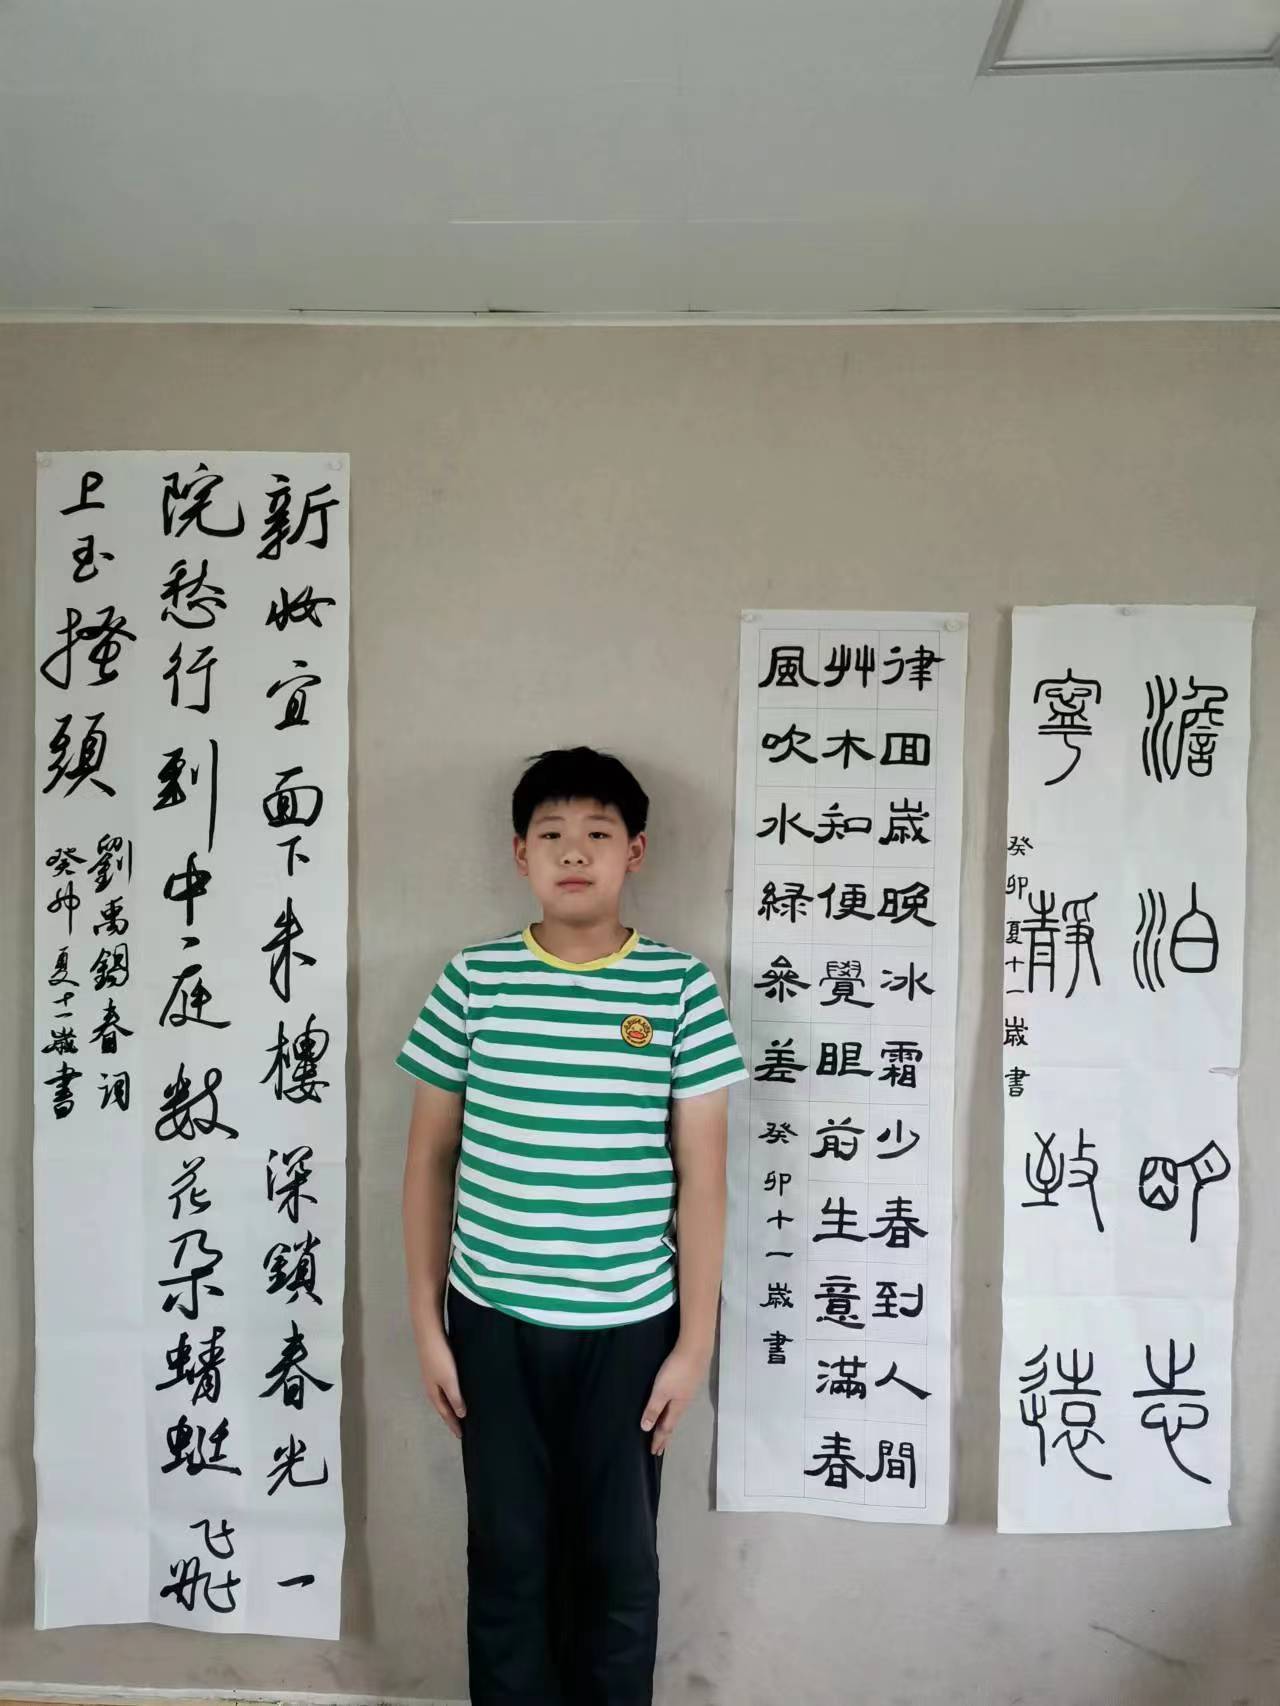 新妝宜面下朱樓深鎖春光一
院愁行到中庭數花朵蜻蜓飛
上玉搔頭
劉禹錫春詞
癸卯夏十一歲書
律回歲晚冰霜少春到人間
艸木知便覺眼前生意滿春
風吹水綠參差
癸卯十一歲書
澹泊明志
寧靜致遠
癸卯夏十一歲書